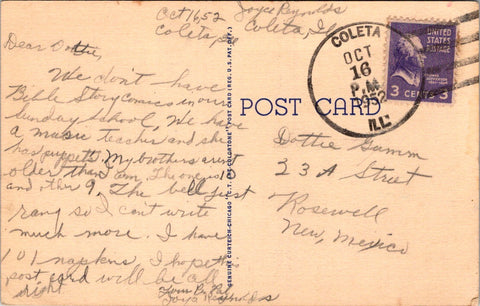 Oct 16, 52
Coleta, Ill
Joyce Reynolds
Coleta, Ill
Dear Dottie,
We don't have
Bible Story comics in our
Sunday School, We have
a music teacher and she
has puppets. My brothers arent
older than I am. The one is 10
and the 9. The bell just
rang so I can't write
much more. I have
101 napkins, I hope this
post card will be all
right.
Your Pen Pal
Joyce Reynolds
GENUINE CURTEICH-CHICAGO "C.T. ART-COLORTONE" POST CARD (REG. U.S. PAT. OFF.)
POST CARD
COLETA
OCT
16
P.M.
1952
ILL.
UNITED STATES
POSTAGE
THOMAS
JEFFERSON
3 CENTS 3
Dottie Gumm
23 A Street
Rosewell
New, Mexico